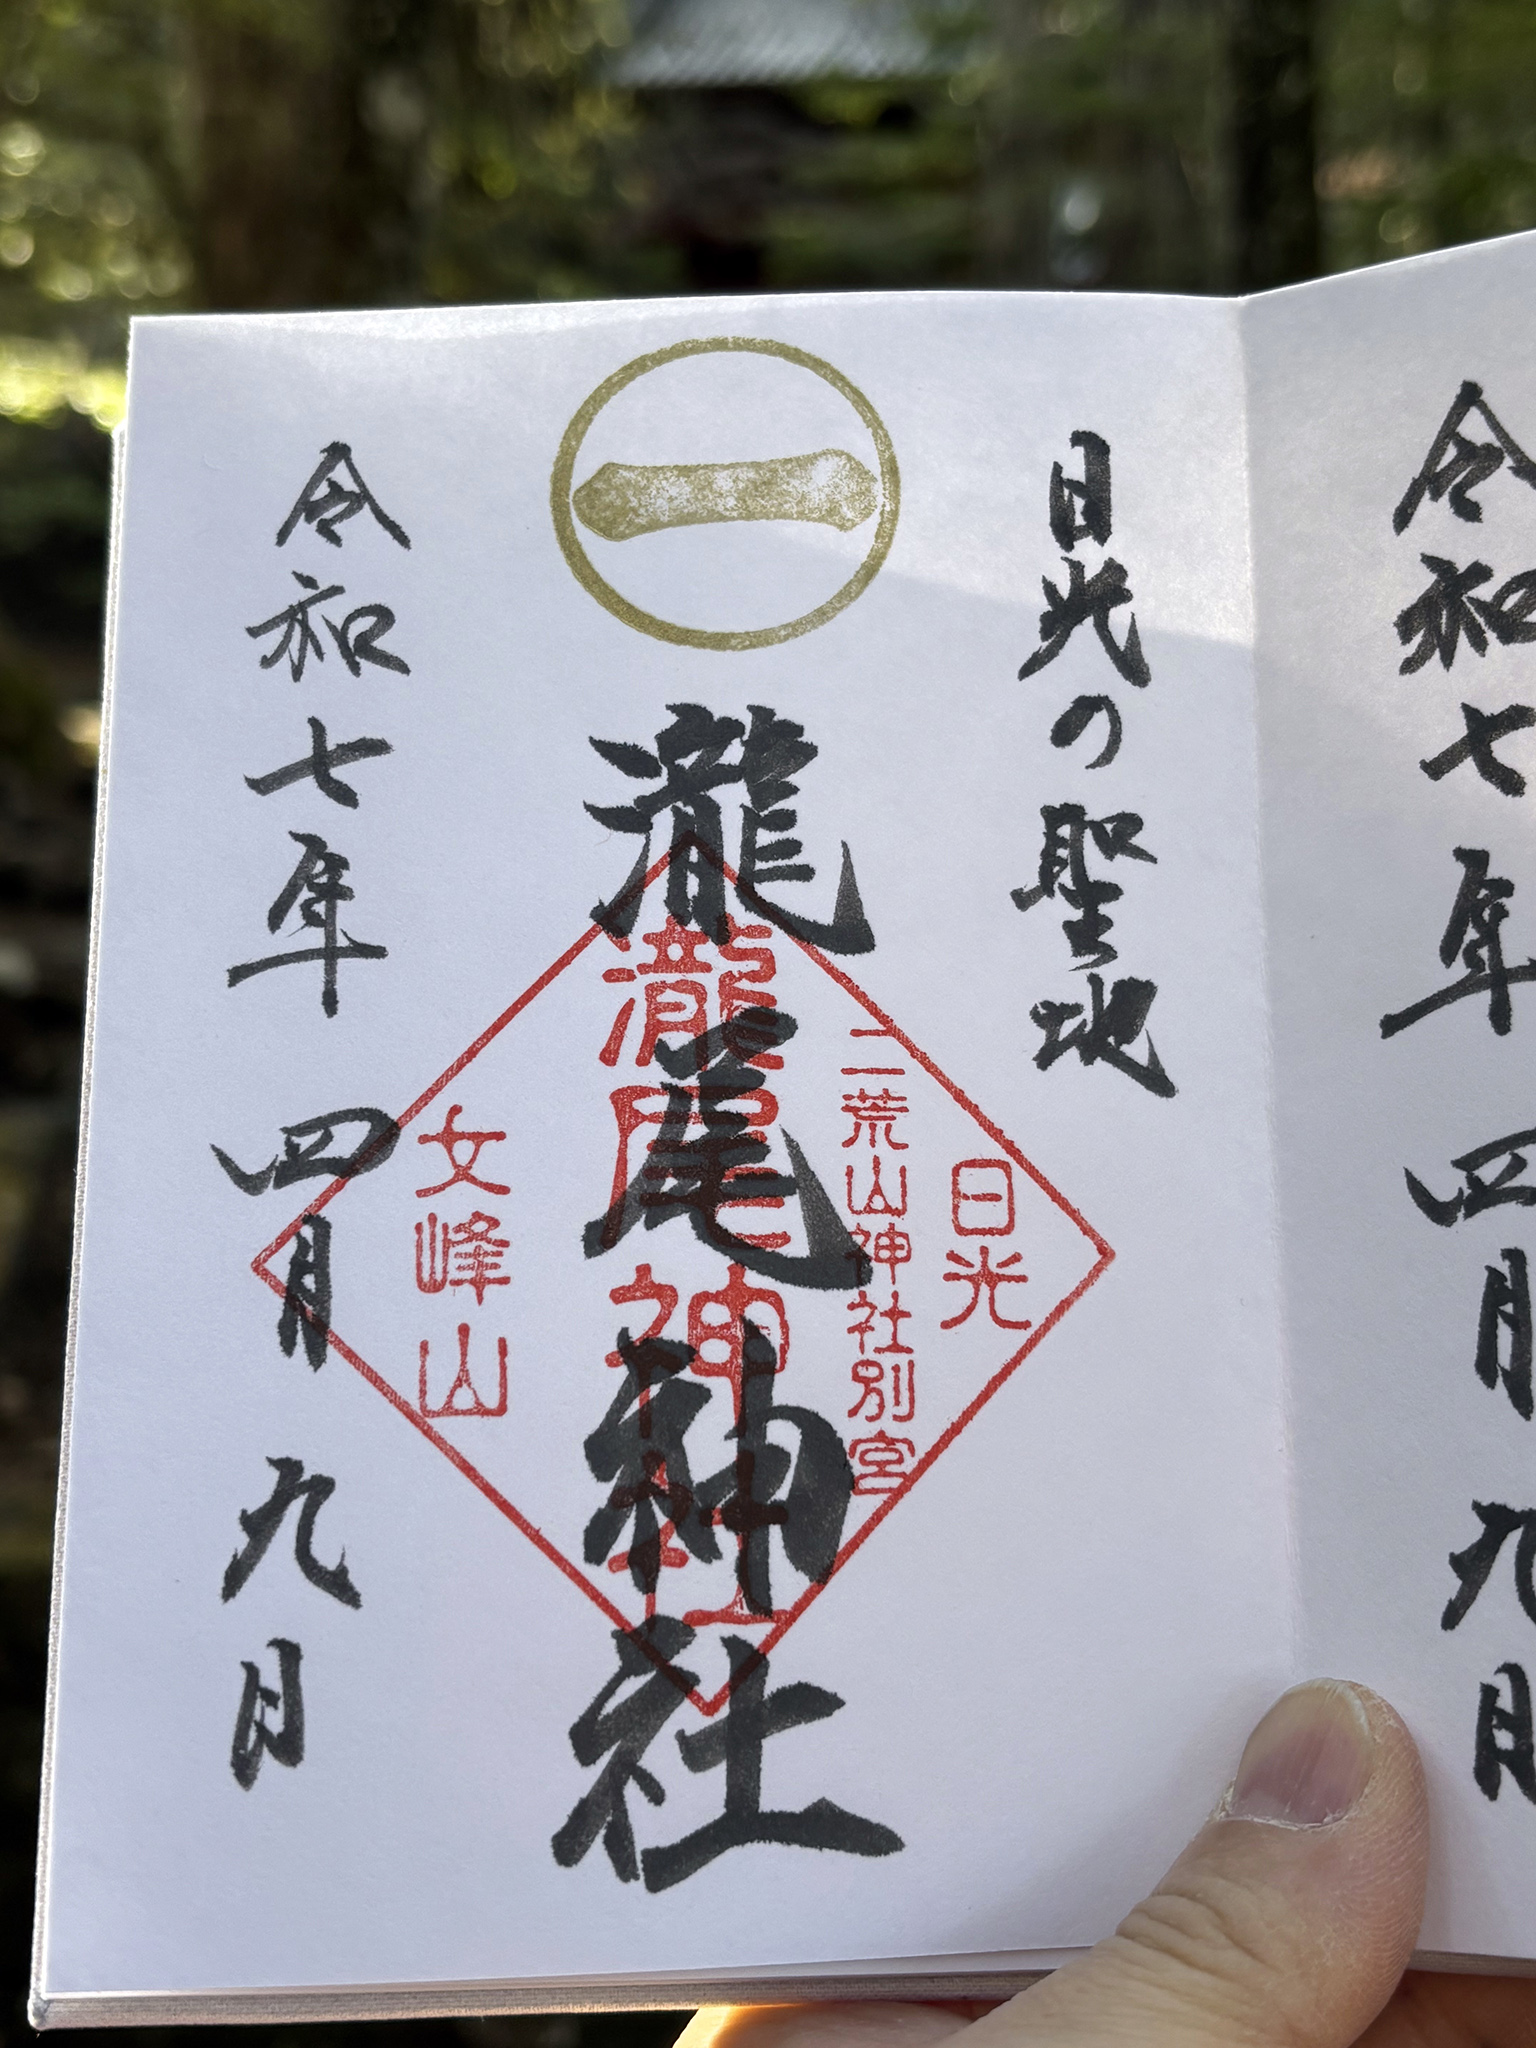 令和七年 四月 九日
日光の聖地
一
瀧尾神社
日光
二荒山神社別宮
瀧尾神社
女峰山
令和七年 四月 九日